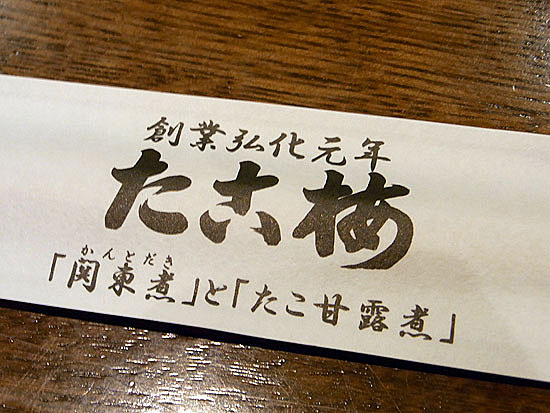 創業弘化元年
たこ梅
かんとだき
「関東煮」と「たこ甘露煮」